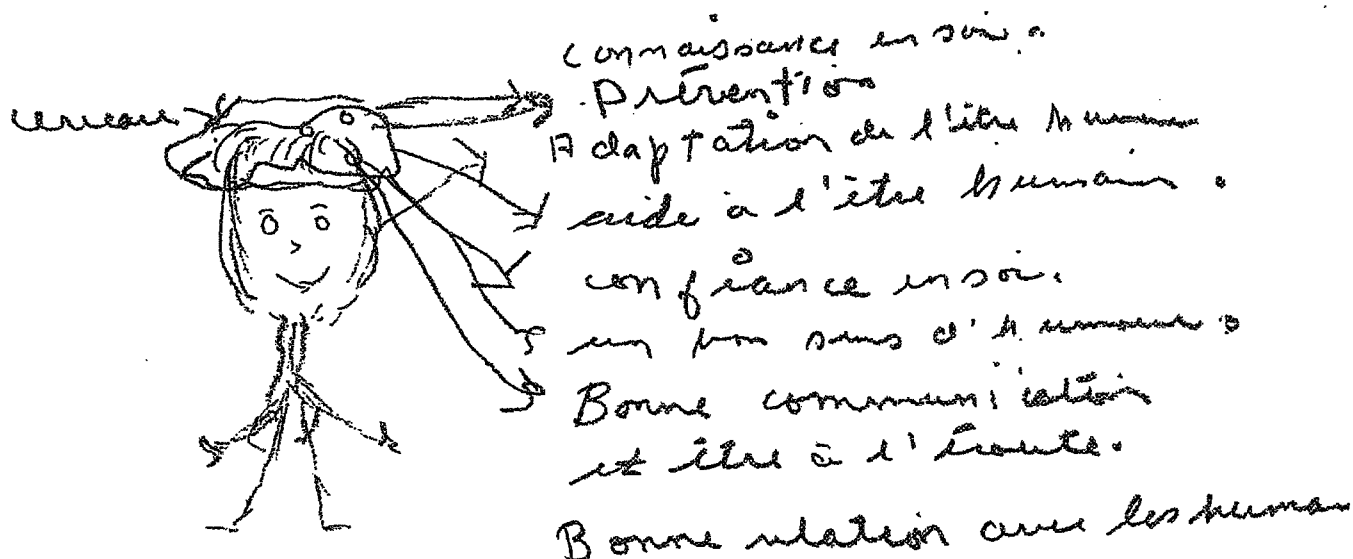 connaissance en soi.
Prévention
cerveau
Adaptation de l'être humain
aide à l'être humain.
confiance en soi.
un bon sens d'humour.
Bonne communication
et être à l'écoute.
Bonne relation avec les humai